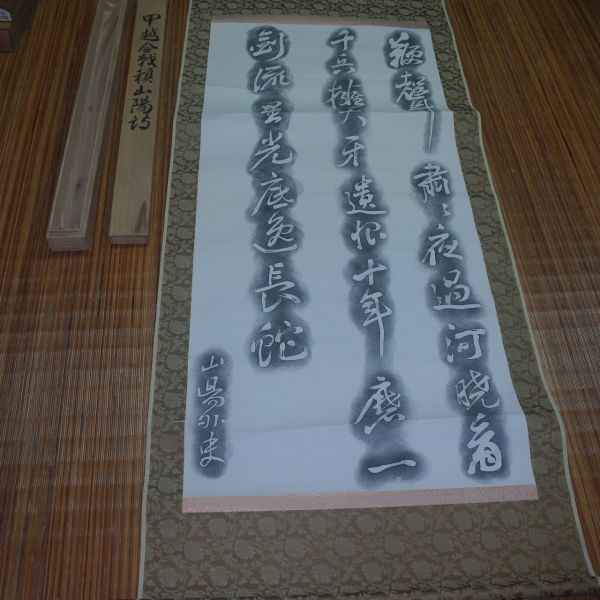 鞭聲肅〻夜過河曉看
千兵擁大牙遺恨十年磨一
剣流星光底逸長蛇
山陽外史
甲越合戦頼山陽詩